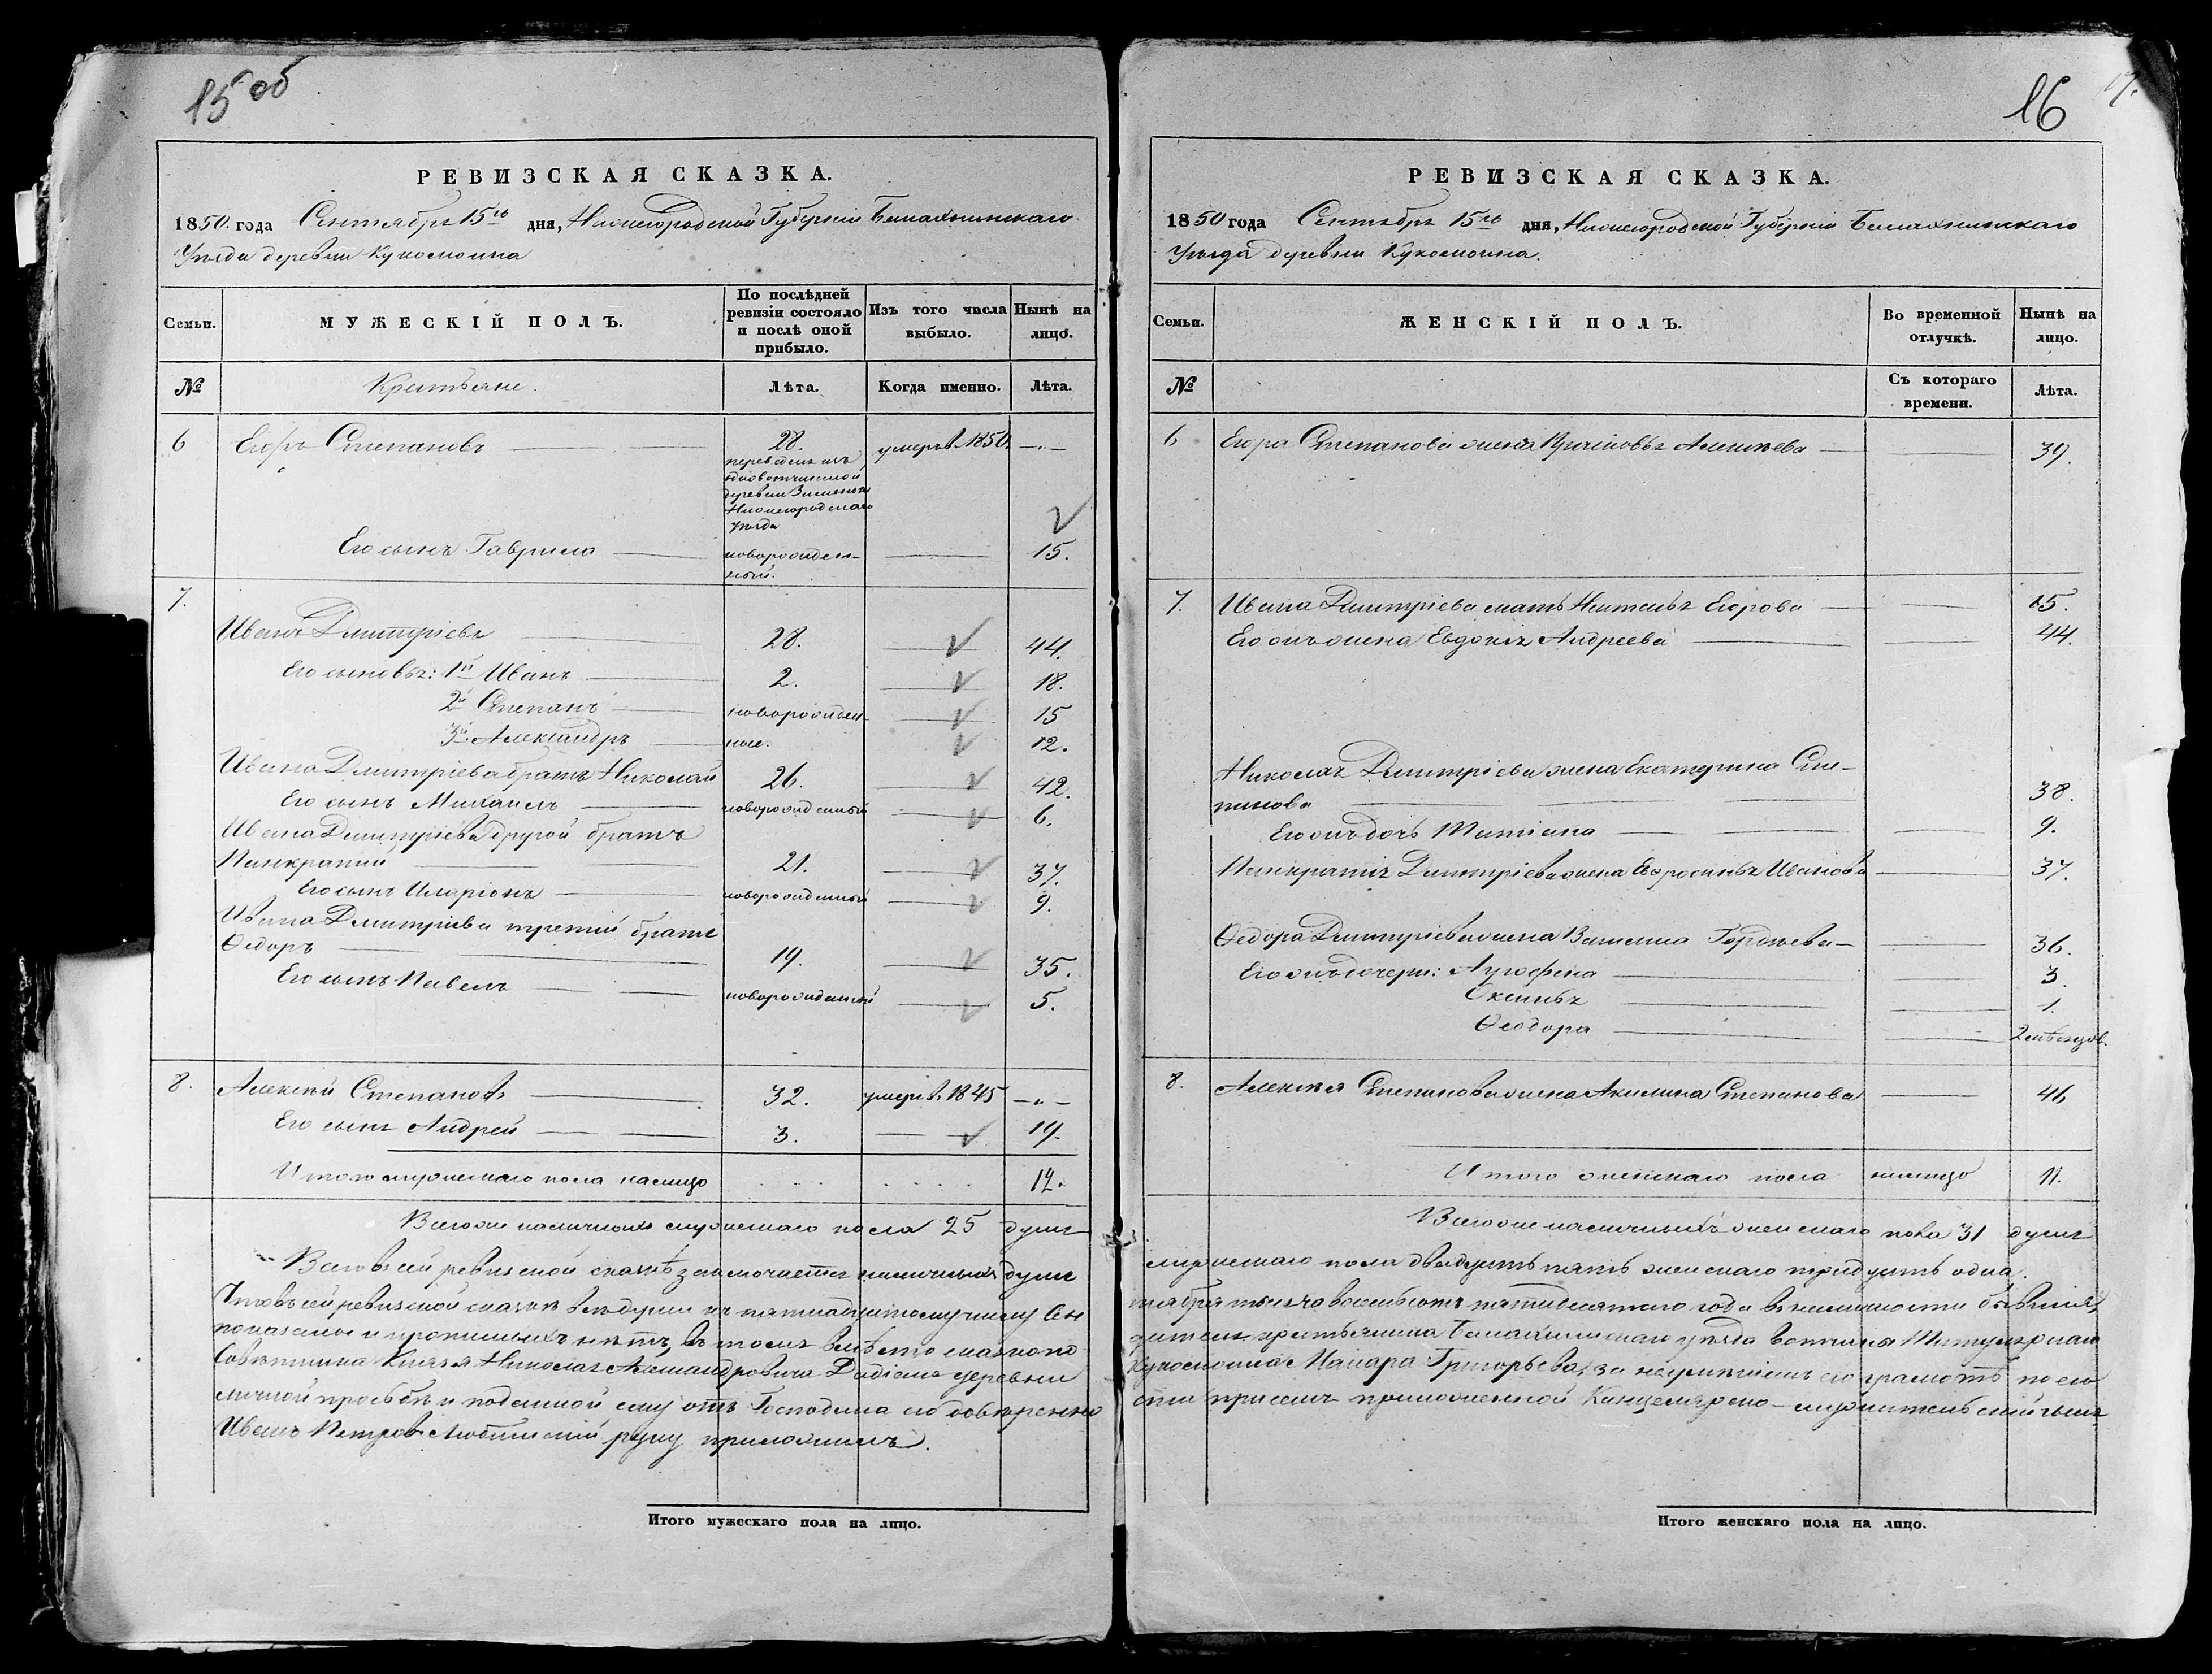 15 об
РЕВИЗСКАЯ СКАЗКА.
1850. года Сентября 15го дня, Нижегородской Губерніи Балахнинскаго
Уѣзда деревни Кукосмоина
Семьи.
МУЖЕСКІЙ ПОЛЪ.
По послѣдней ревизіи состояло и послѣ оной прибыло.
Изъ того числа выбыло.
Нынѣ на лицо.
№ Крестьяне. Лѣта. Когда именно. Лѣта.
6 Егоръ Степановъ 28. умеръ в. 1850. —
переведенъ изъ
одновотчинной
деревни Зименокъ
Нижегородскаго
уѣзда
Его сынъ Гаврила новорожден- 15.
ный.
7.
Иванъ Дмитріевъ 28. 44.
Его сыновья: 1й Иванъ 2. 18.
2й Степанъ новорожден- 15
3й Александръ ные. 12.
Ивана Дмитріева братъ Николай 26. 42.
Его сынъ Михаилъ новорожденный 6.
Ивана Дмитріева другой братъ
Панкратій 21. 37.
Его сынъ Иларіонъ новорожденный 9.
Ивана Дмитріева третій братъ
Ѳедоръ 19. 35.
Его сынъ Павелъ новорожденный 5.
8. Алексѣй Степановъ 32. умеръ в. 1845 —
Его сынъ Андрей 3. 19.
Итого мужескаго пола налицо 12.
Всего же наличныхъ мужескаго пола 25 душъ
Всего въ сей ревизской сказкѣ заключается наличныхъ душъ
Что въ сей ревизской сказкѣ всѣ души къ пятнадцатому числу Сен
показаны и прописныхъ нѣтъ, въ томъ вмѣсто
Совѣтника Князя Николая Александровича Дадіана деревни
личной просьбѣ и поданной ему отъ Господина его довѣренно
Иванъ Петровъ Любимскій руку приложилъ.
Итого мужескаго пола на лицо.
16
17.
РЕВИЗСКАЯ СКАЗКА.
1850 года Сентября 15го дня, Нижегородской Губерніи Балахнинскаго
Уѣзда деревни Кукосмоина.
Семьи.
ЖЕНСКІЙ ПОЛЪ.
Во временной отлучкѣ.
Нынѣ на лицо.
№ Съ котораго времени. Лѣта.
6 Егора Степанова жена Прасковья Алексѣева 39.
7. Ивана Дмитріева мать Наталья Егорова 65.
Его жъ жена Евдокія Андреева 44.
Николая Дмитріева жена Екатерина Сте-
панова 38.
Его жъ дочь Татіана 9.
Панкратія Дмитріева жена Евфросинья Иванова 37.
Ѳедора Дмитріева жена Василиса Гордѣева 36.
Его жъ дочери: Агрофена 3.
Оксинья 1.
Ѳеодора 2 мѣсяцов.
8. Алексѣя Степанова жена Акилина Степанова 46
Итого женскаго пола налицо 11.
Всего же наличныхъ женскаго пола 31 душъ
мужескаго пола двадцать пять женскаго тридцать одна.
тября тысяча восемьсотъ пятидесятаго года въ наличности бывшія,
крестьянина Балахнинскаго уѣзда вотчины Титулярнаго
Кукосмоина Макара Григорьева, за неумѣніемъ его грамотѣ по его
сти при семъ приложенной Канцелярско-служительскій сынъ
Итого женскаго пола на лицо.